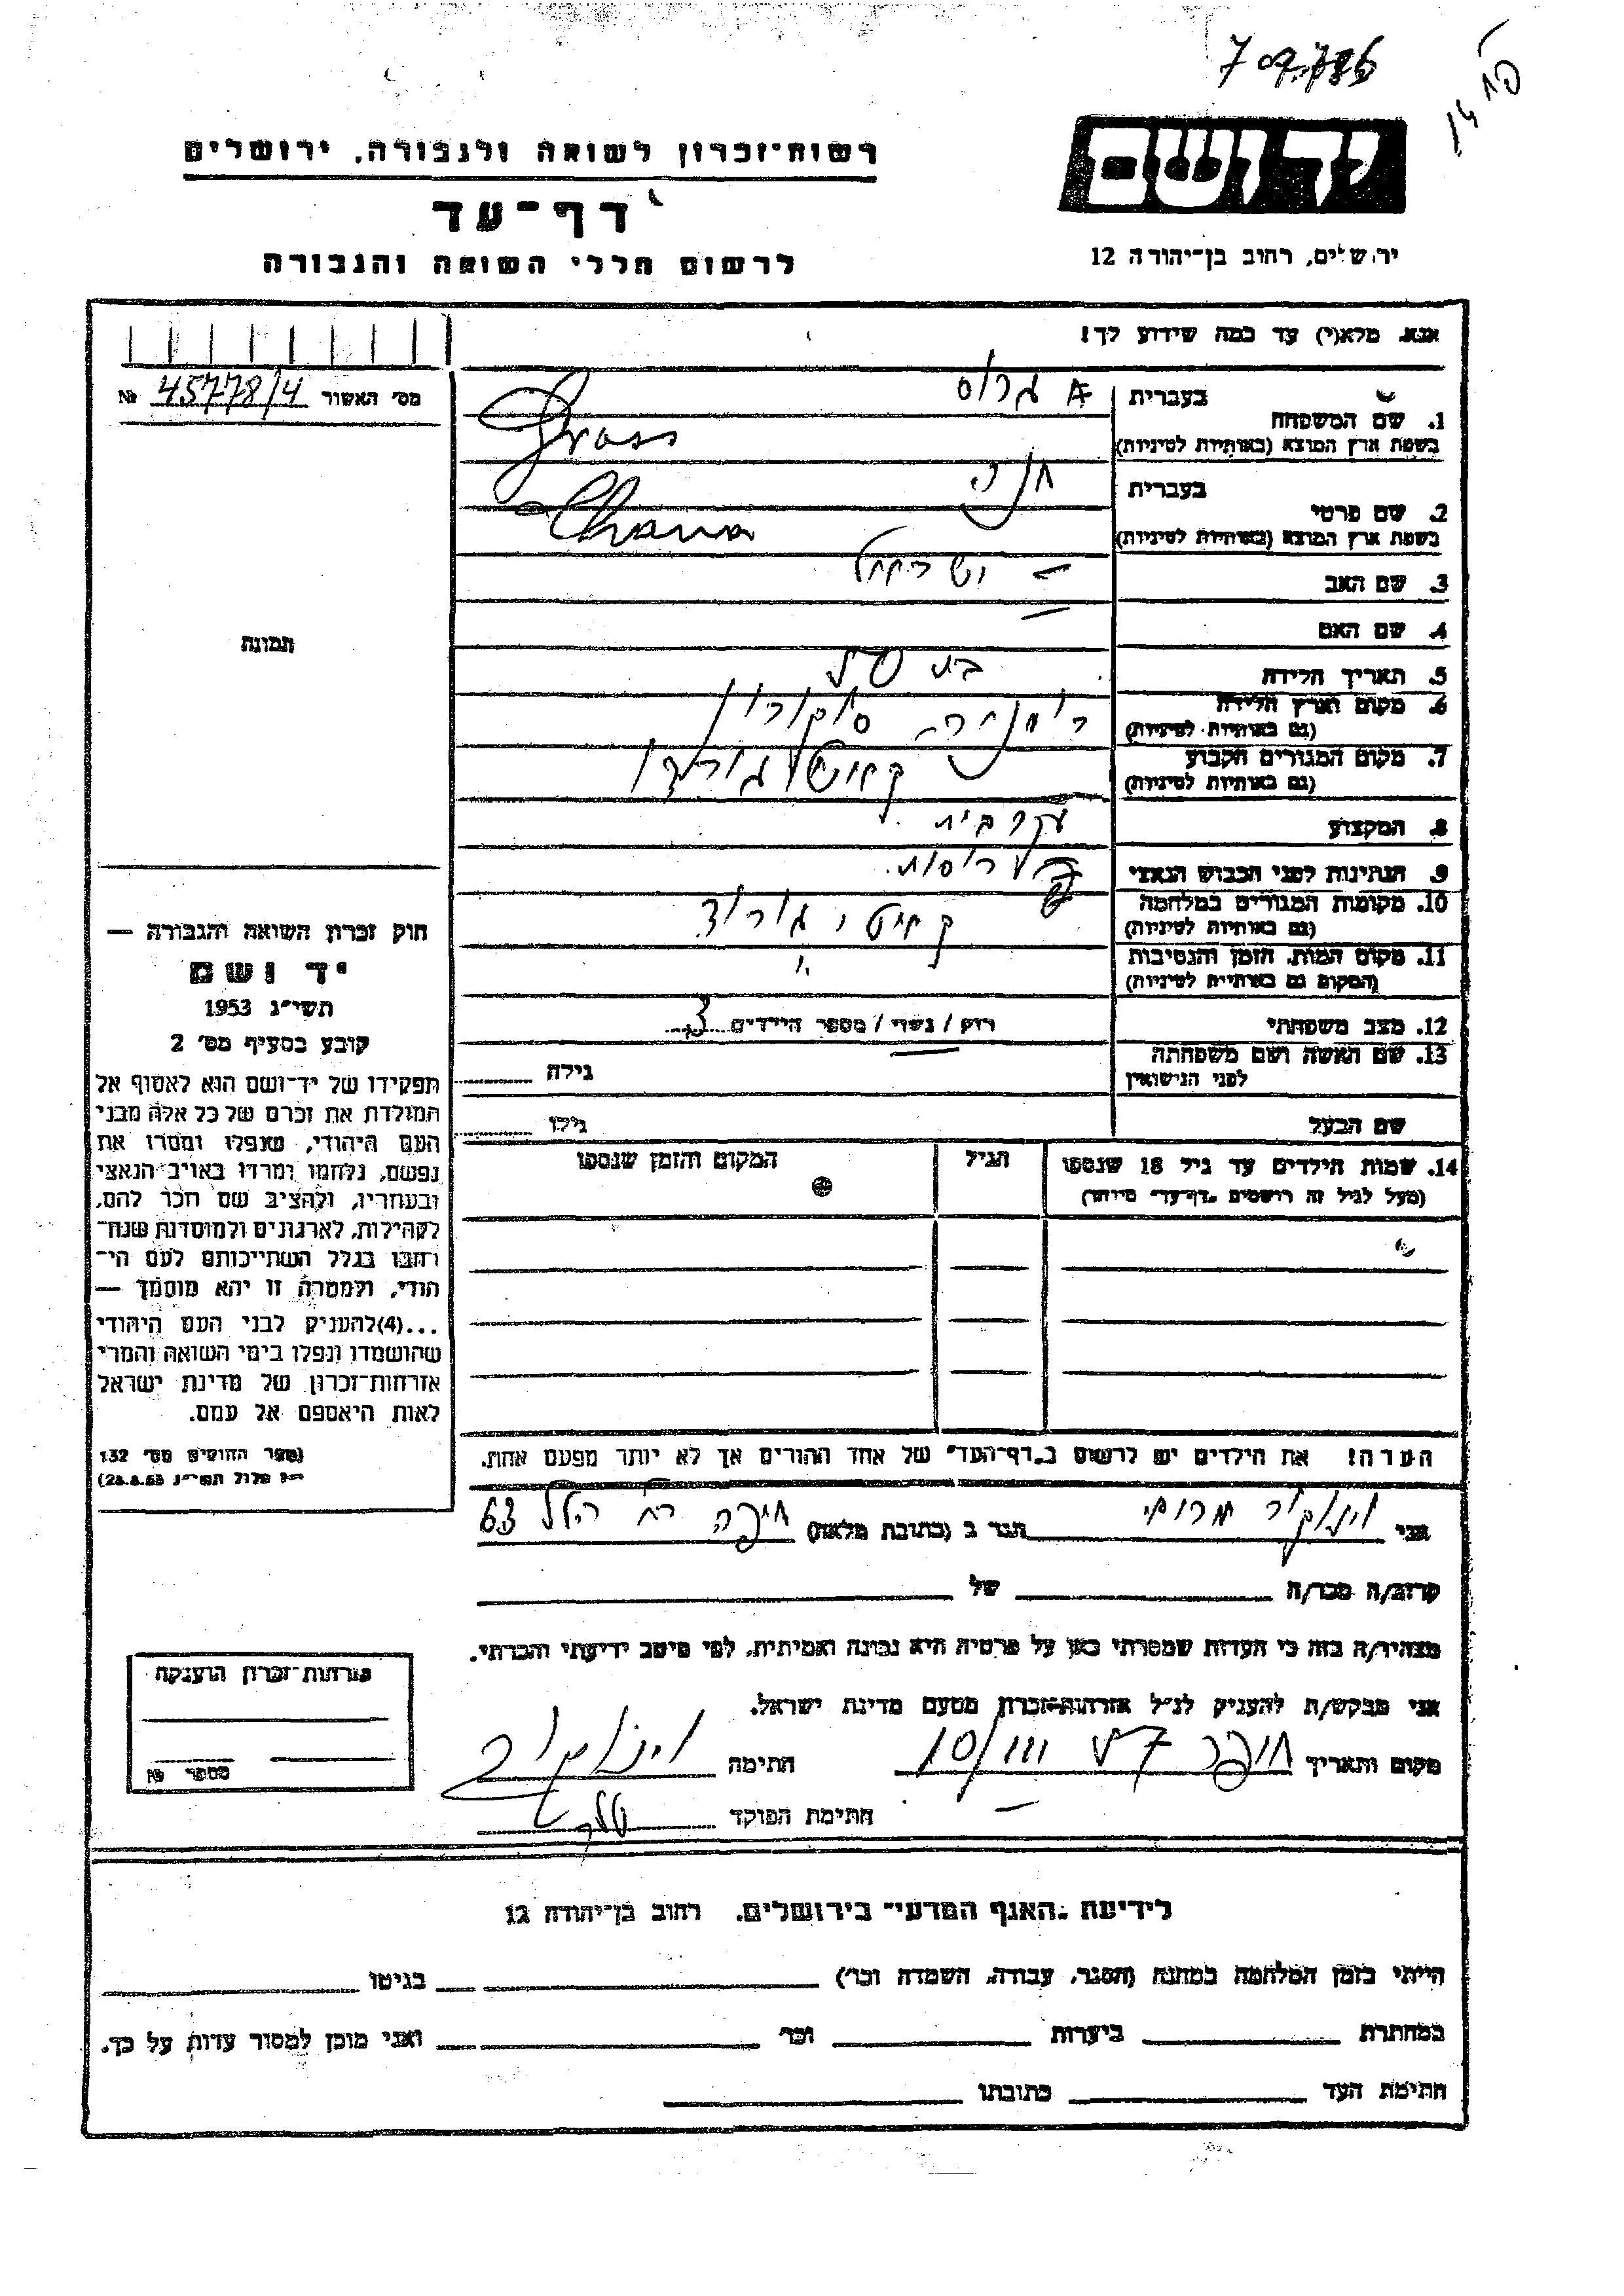 רשות־זכרון לשואה ולגבורה, ירושלים
דף־עד
לרשום חללי השואה והגבורה
יד ושם
ירושלים, רחוב בן־יהודה 12
אנא, מלא(י) עד כמה שידוע לך!
מס׳ האשור № 45778/4
1. שם המשפחה בעברית גרוס
בשפת ארץ המוצא (באותיות לטיניות) Gross
2. שם פרטי בעברית חנה
בשפת ארץ המוצא (באותיות לטיניות) Chana
3. שם האב ישראל
4. שם האם —
5. תאריך הלידה בת
6. מקום וארץ הלידה
(גם באותיות לטיניות)
7. מקום המגורים הקבוע
(גם באותיות לטיניות)
8. המקצוע עקרבית
9. הנתינות לפני הכבוש הנאצי
10. מקומות המגורים במלחמה
(גם באותיות לטיניות)
11. מקום המות, הזמן והנסיבות
(המקום גם באותיות לטיניות)
12. מצב משפחתי רווק / נשוי / מספר הילדים 3
13. שם האשה ושם משפחתה
לפני הנישואין גילה
שם הבעל גילו
14. שמות הילדים עד גיל 18 שנספו הגיל המקום והזמן שנספו
(מעל לגיל זה רושמים „דף־עד״ מיוחד)
הערה! את הילדים יש לרשום ב„דף־העד״ של אחד ההורים אך לא יותר מפעם אחת.
תמונה
חוק זכרון השואה והגבורה —
יד ושם
תשי״ג 1953
קובע בסעיף מס׳ 2
תפקידו של יד־ושם הוא לאסוף אל
המולדת את זכרם של כל אלה מבני
העם היהודי, שנפלו ומסרו את
נפשם, נלחמו ומרדו באויב הנאצי
ובעוזריו, ולהציב שם וזכר להם,
לקהילות, לארגונים ולמוסדות שנח־
רבו בגלל השתייכותם לעם הי־
הודי, ולמטרה זו יהא מוסמך —
...(4)להעניק לבני העם היהודי
שהושמדו ונפלו בימי השואה והמרי
אזרחות־זכרון של מדינת ישראל
לאות היאספם אל עמם.
(ספר החוקים מס׳ 132
י״ז אלול תשי״ג 28.8.53)
אני הגר ב (כתובת מלאה) חיפה רח׳ הלל 63
קרוב/ה מכר/ה של
מצהיר/ה בזה כי העדות שמסרתי כאן על פרטיה היא נכונה ואמיתית, לפי מיטב ידיעתי והכרתי.
אני מבקש/ת להעניק לנ״ל אזרחות־זכרון מטעם מדינת ישראל.
מקום ותאריך חיפה 10/III 57 חתימה
חתימת הפוקד
אזרחות־זכרון הוענקה
מספר №
לידיעת „האגף המדעי״ בירושלים, רחוב בן־יהודה 12
הייתי בזמן המלחמה במחנה (הסגר, עבודה, השמדה וכו׳) בגיטו
במחתרת ביערות וכו׳ ואני מוכן למסור עדות על כך.
חתימת העד כתובתו